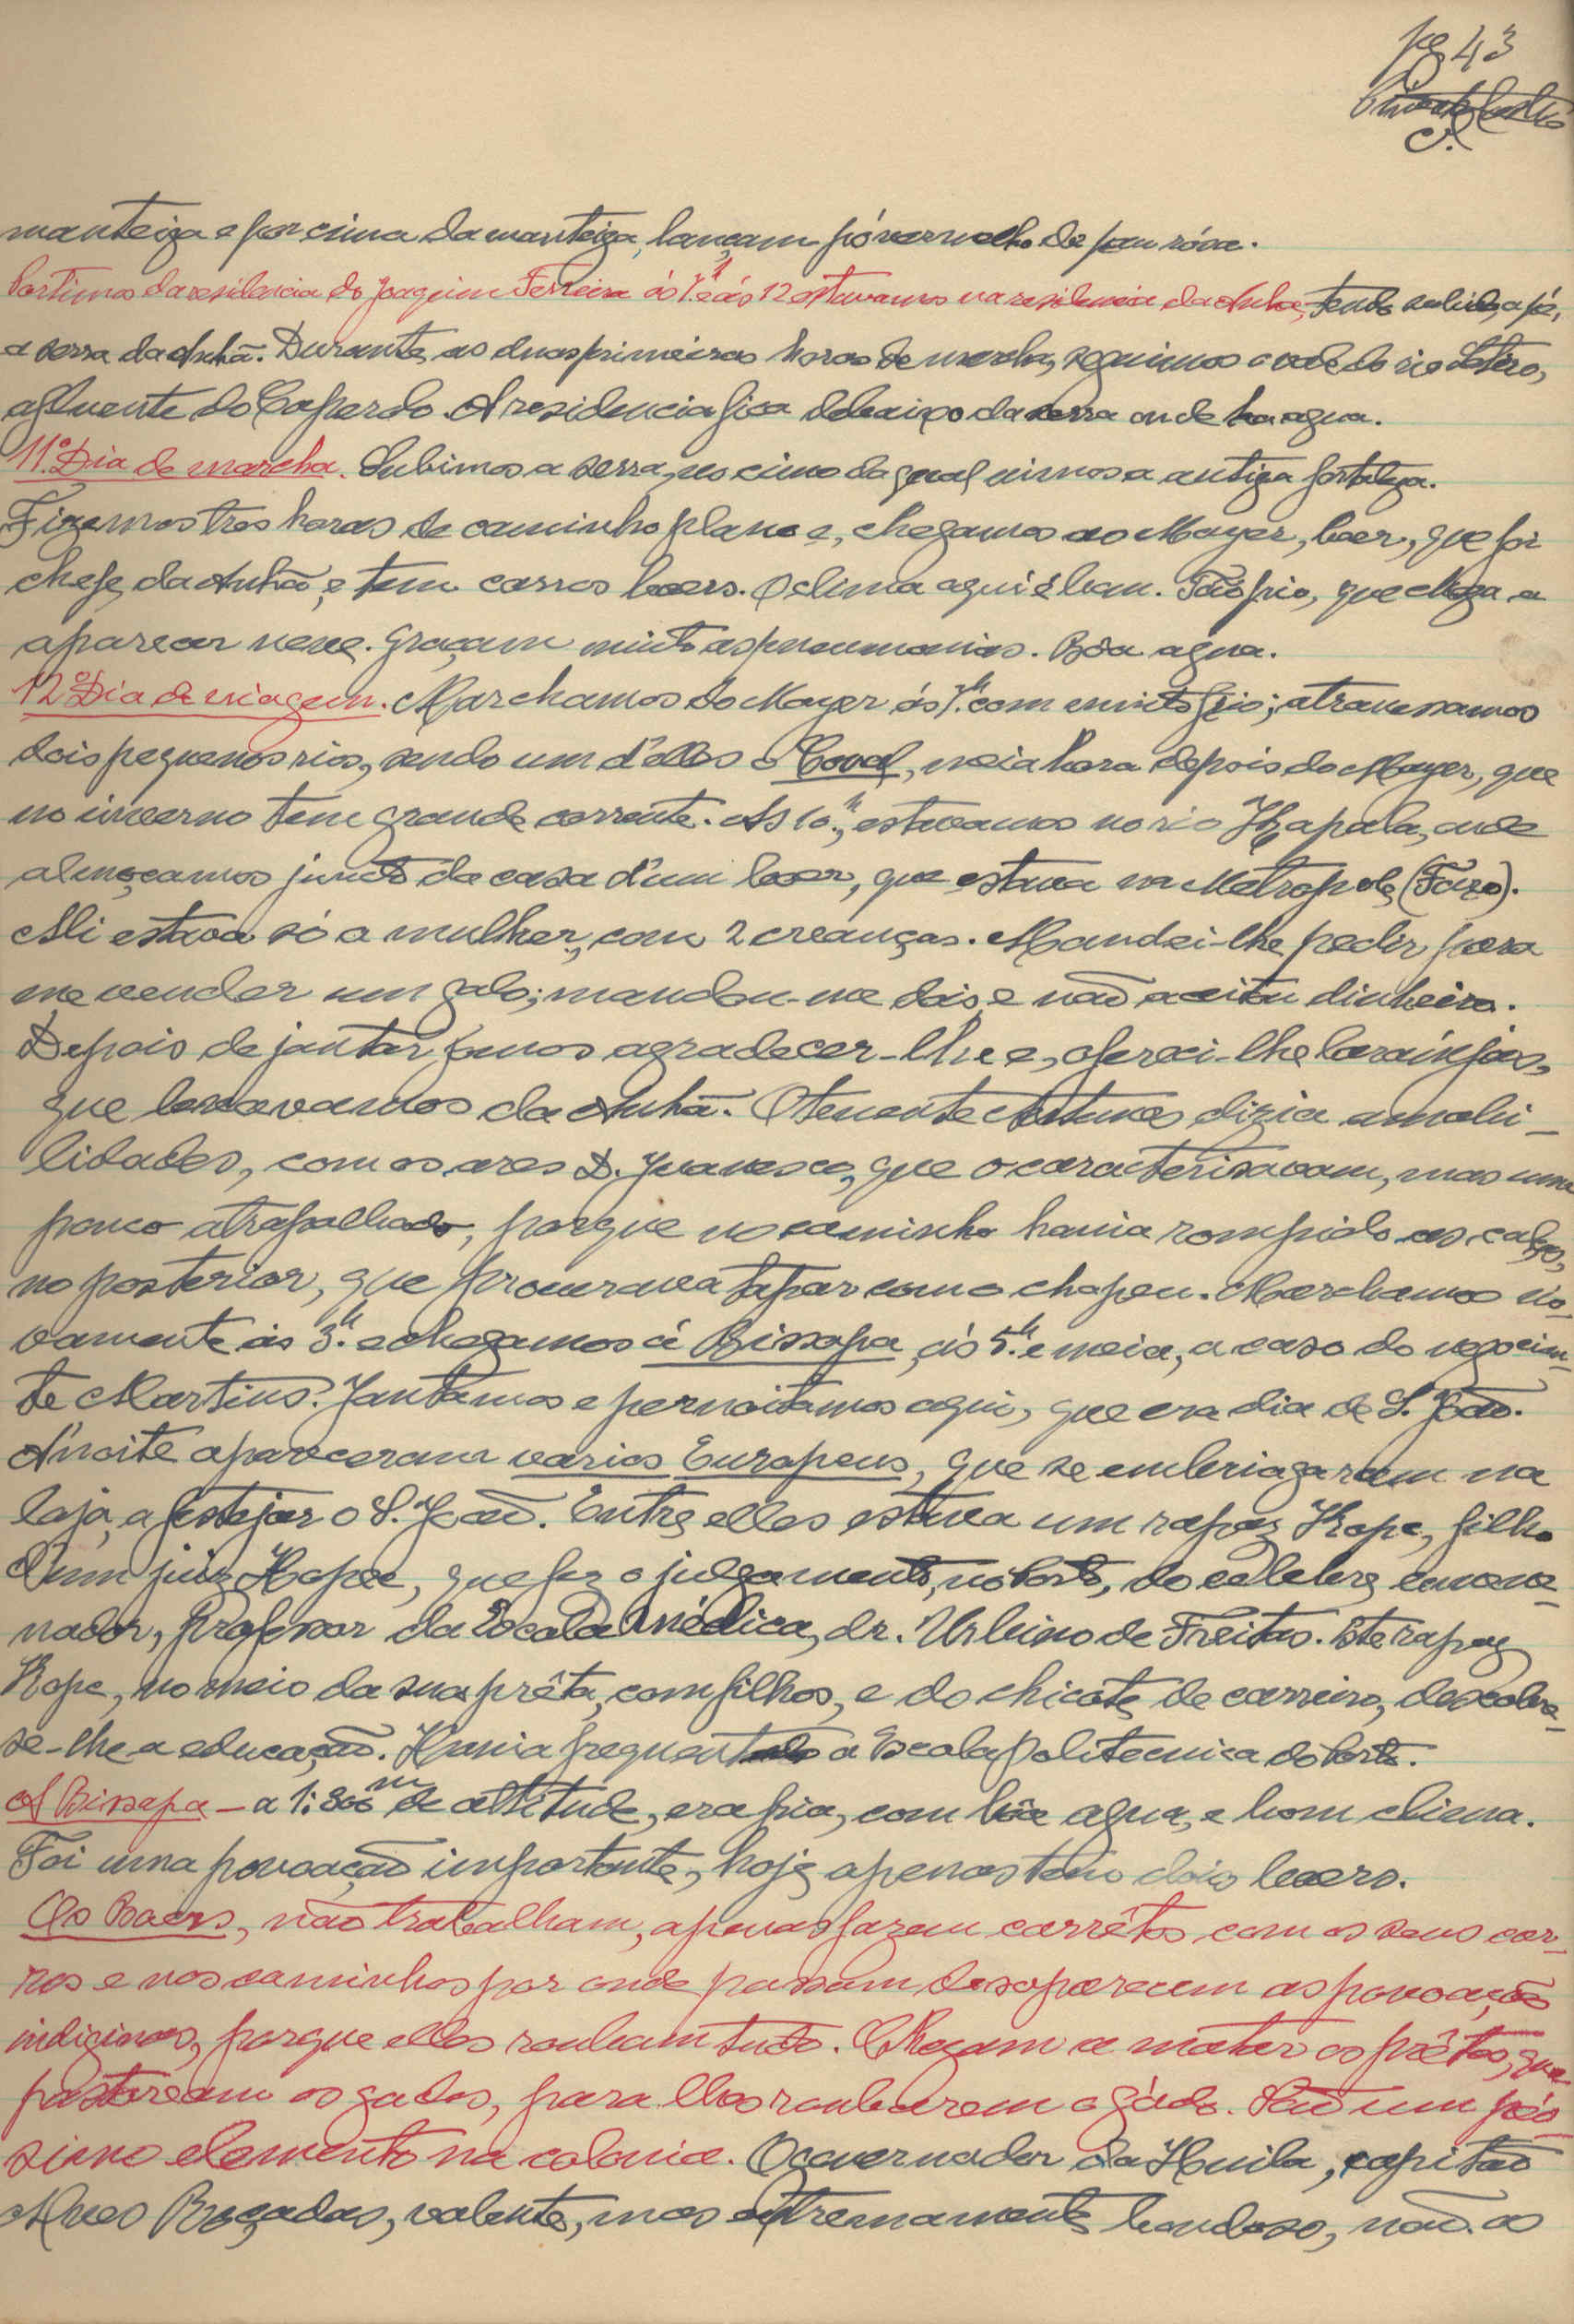 pg 43
manteiga e por cima da manteiga, lançam pó vermelho de pau
Partimos da residencia do Joaquim Ferreira ás 7h e ás 12 estavamos na residencia da Anhã, tendo subido, a pé,
a serra da Anhã. Durante as duas primeiras horas de marcha, seguimos o vale do rio
afluente do Caperdo. A residencia fica debaixo da serra onde ha agua.
11º Dia de marcha. Subimos a serra, no cimo da qual vimos a antiga fortaleza.
Fizemos tres horas de caminho plano e, chegamos ao Mayer, boer, que foi
chefe da Anhã, e tem carros boers. O clima aqui é bom. Tão frio, que chega a
aparecer neve. Graçam muito as pneumonias. Bôa agua.
12º Dia de viagem. Marchamos do Mayer ás 7h com muito frio; atravessamos
dois pequenos rios, sendo um d'elles o Coval, meia hora depois do Mayer, que
no inverno tem grande corrente. As 10h, estavamos no rio Hapala, onde
almoçamos junto da casa d'um boer, que estava na Metropole
Ali estava só a mulher, com 2 creanças. Mandei-lhe pedir para
me vender um galo; mandou-me dois e não aceitou dinheiro.
Depois de jantar fomos agradecer-lhe e, ofereci-lhe laranjas,
que levavamos da Anhã. O tenente Antunes dizia amabi-
lidades, com os ares D. Juanesco, que o caracterisavam, mas um
pouco atrapalhado, porque no caminho havia rompido as calças,
no posterior, que procurava tapar com o chapeu. Marchamos no-
vamente ás 3h e chegamos á Bissapa, ás 5h e meia, a casa do negocian-
te Martins. Jantamos e pernoitamos aqui, que era dia de S. João.
Á noite apareceram varios Europeus, que se embriagaram na
loja, a festejar o S. João. Entre elles estava um rapaz Hope, filho
d'um juiz Hope, que fez o julgamento, no Porto, do celebre envene-
nador, professor da Escola Médica, dr. Urbino de Freitas. Este rapaz
Hope, no meio da sua prêta, com filhos, e do chicote de carreiro, descobre-
se-lhe a educação. Havia frequentado a Escola Politecnica do Porto.
A Bissapa - a 1:800m de altitude, era fria, com bôa agua, e bom clima.
Foi uma povoação importante, hoje apenas tem dois boers.
Os Boers, não trabalham, apenas fazem carrêtos com os seus car-
ros e nos caminhos por onde passam desaparecem as povoações
indiginas, porque elles roubam tudo. Chegam a matar os prêtos, que
pastoream os gados, para lhes roubarem o gádo. São um pés-
simo elemento na colonia. O governador da Huila, capitão
Alves Roçadas, valente, mas extremamente bondoso, não os